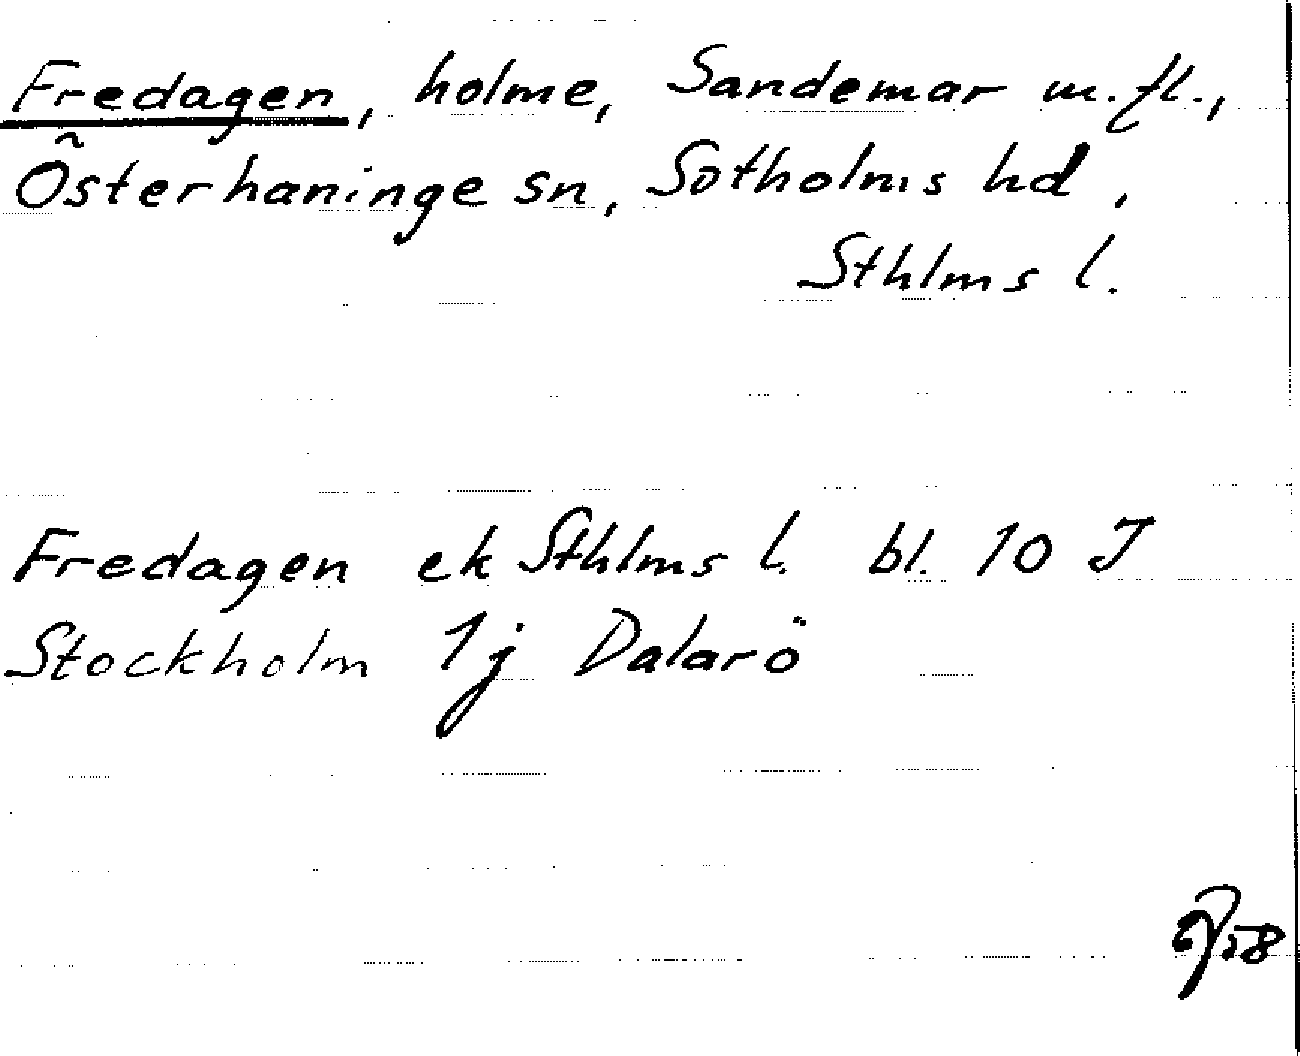 Fredagen, holme, Sandemar m.fl.,
Österhaninge sn, Sotholms hd,
Sthlms l.
Fredagen ek Sthlms l. bl. 10 J
Stockholm 1j Dalarö
58